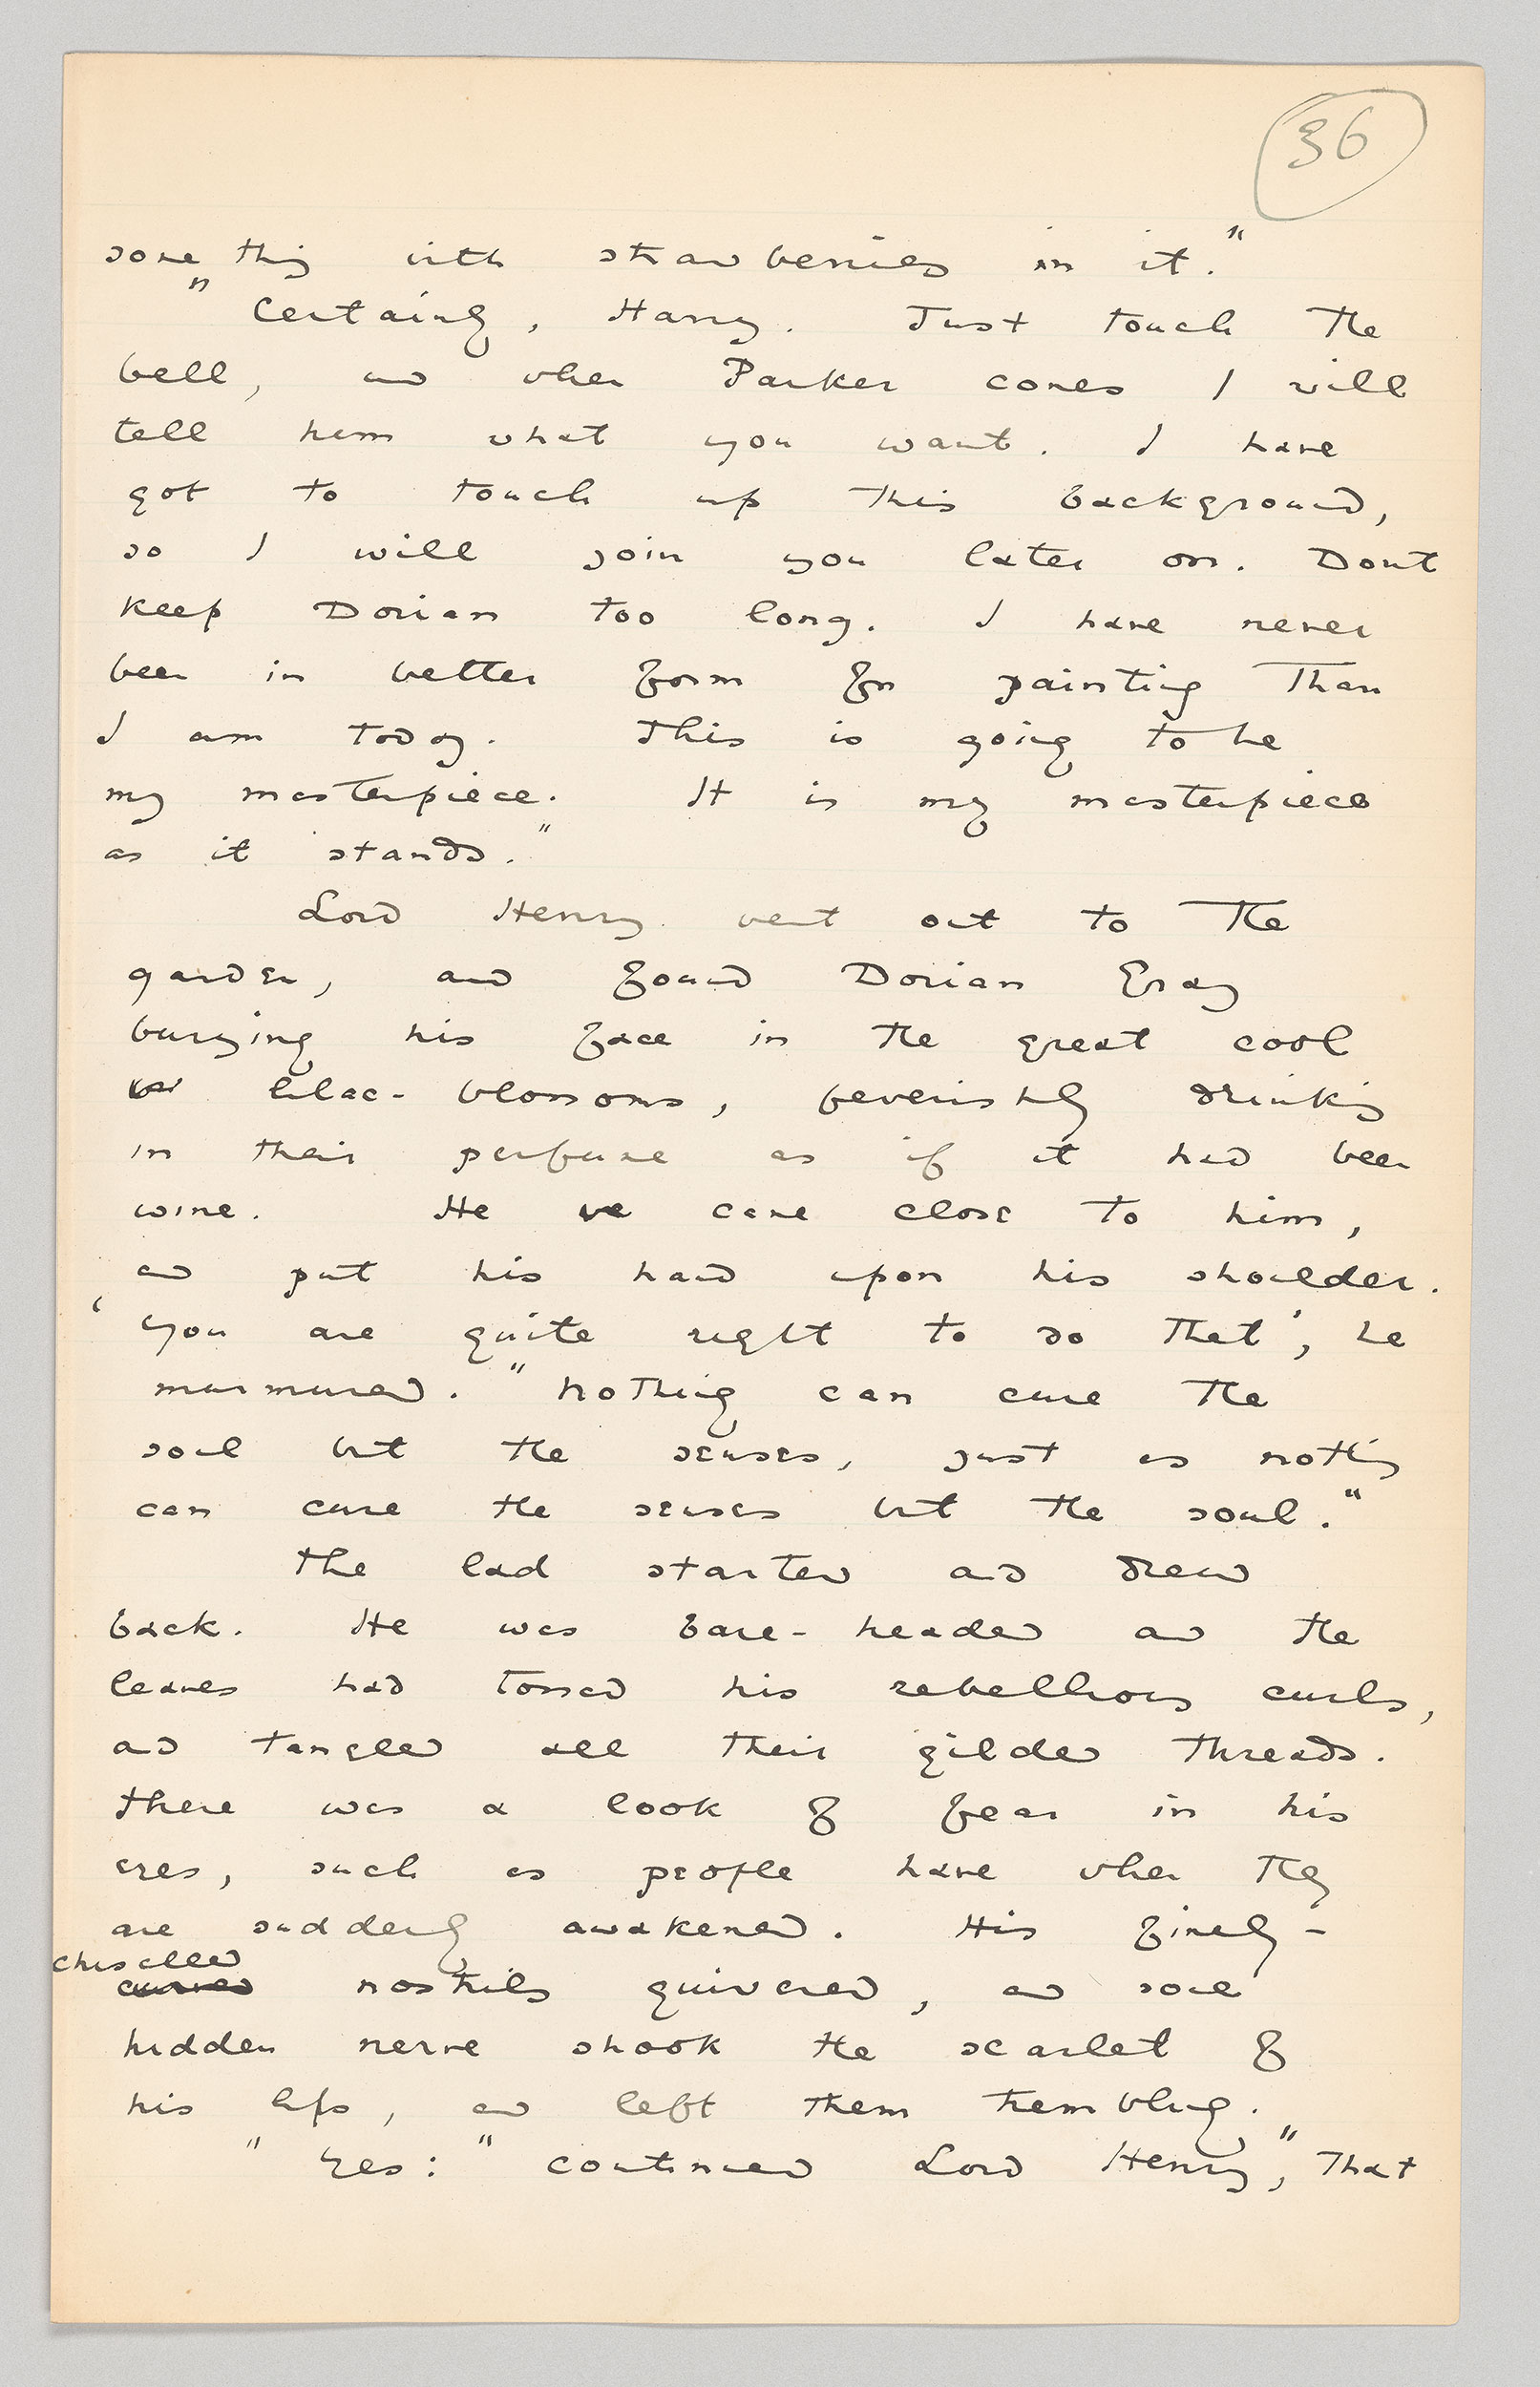 36
something with strawberries in it."
"Certainly, Harry. Just touch the
bell, and when Parker comes I will
tell him what you want. I have
got to touch up this background,
so I will join you later on. Dont
keep Dorian too long. I have never
been in better form for painting than
I am today. This is going to be
my masterpiece. It is my masterpiece
as it stands."
Lord Henry went out to the
garden, and found Dorian Gray
burying his face in the great cool
lilac-blossoms, feverishly drinking
in their perfume as if it had been
wine. He came close to him,
and put his hand upon his shoulder.
'You are quite right to do that', he
murmured. "Nothing can cure the
soul but the senses, just as nothing
can cure the senses but the soul."
The lad started and drew
back. He was bare-headed and the
leaves had tossed his rebellious curls,
and tangled all their gilded threads.
There was a look of fear in his
eyes, such as people have when they
are suddenly awakened. His finely-
chiselled
curved nostrils quivered, and some
hidden nerve shook the scarlet of
his lips, and left them trembling.
"Yes:" continued Lord Henry, "that